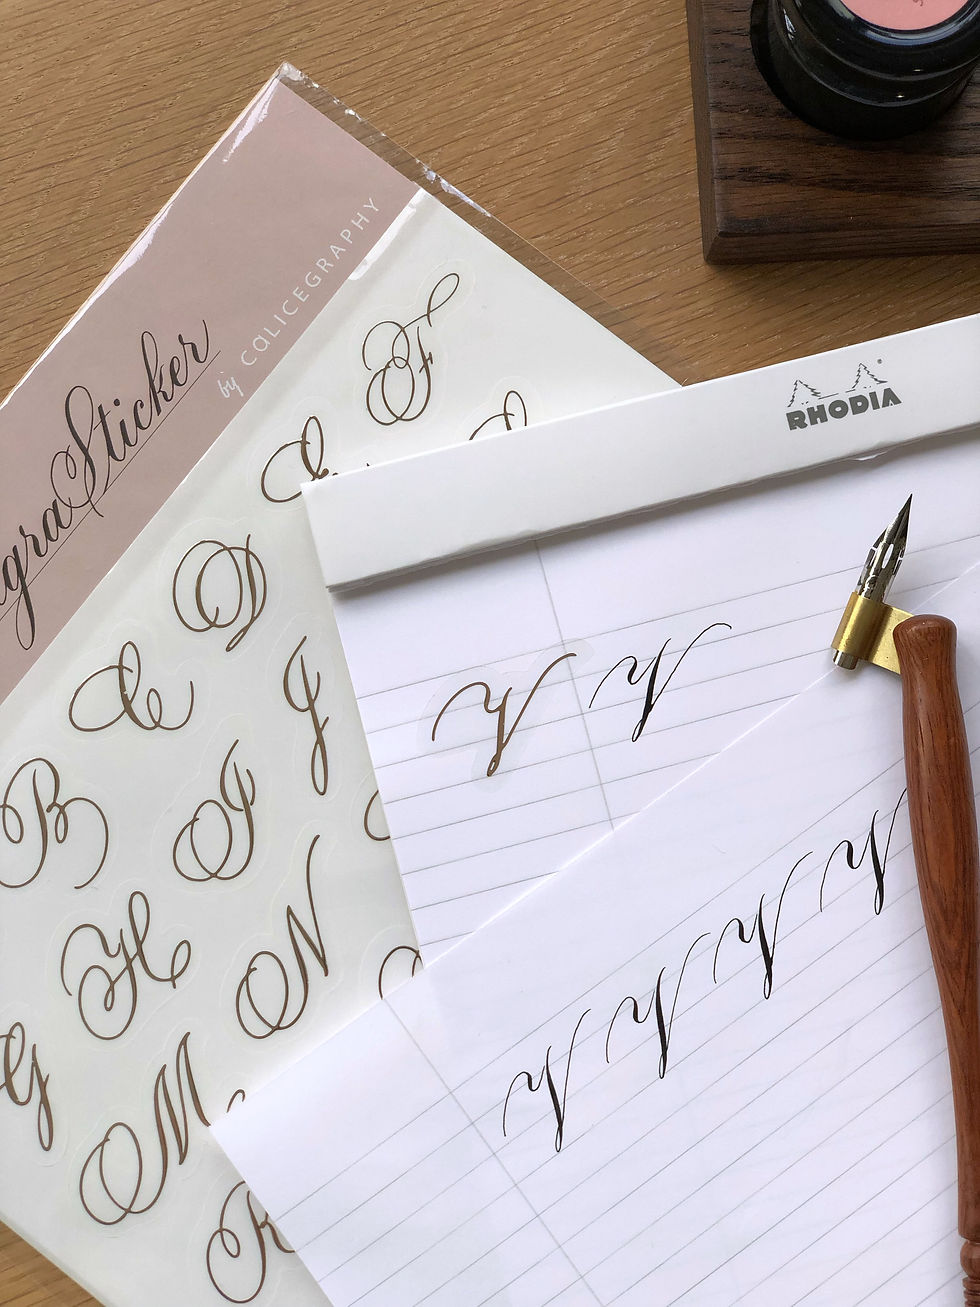 graSticker
by CaLICEGRAPHY
B C D E F
G H I J
M N
R
RHODIA